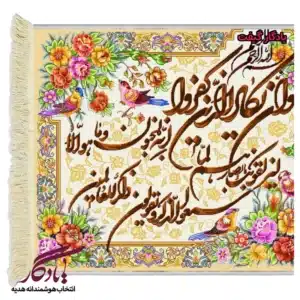 یادگار گیفت
بسم الله الرحمن الرحیم
وان یکاد الذین کفروا
لیزلقونک بابصارهم لما
سمعوا الذکر و یقولون
انه لمجنون وما هو الا
ذکر للعالمین
یادگار
انتخاب هوشمندانه هدیه